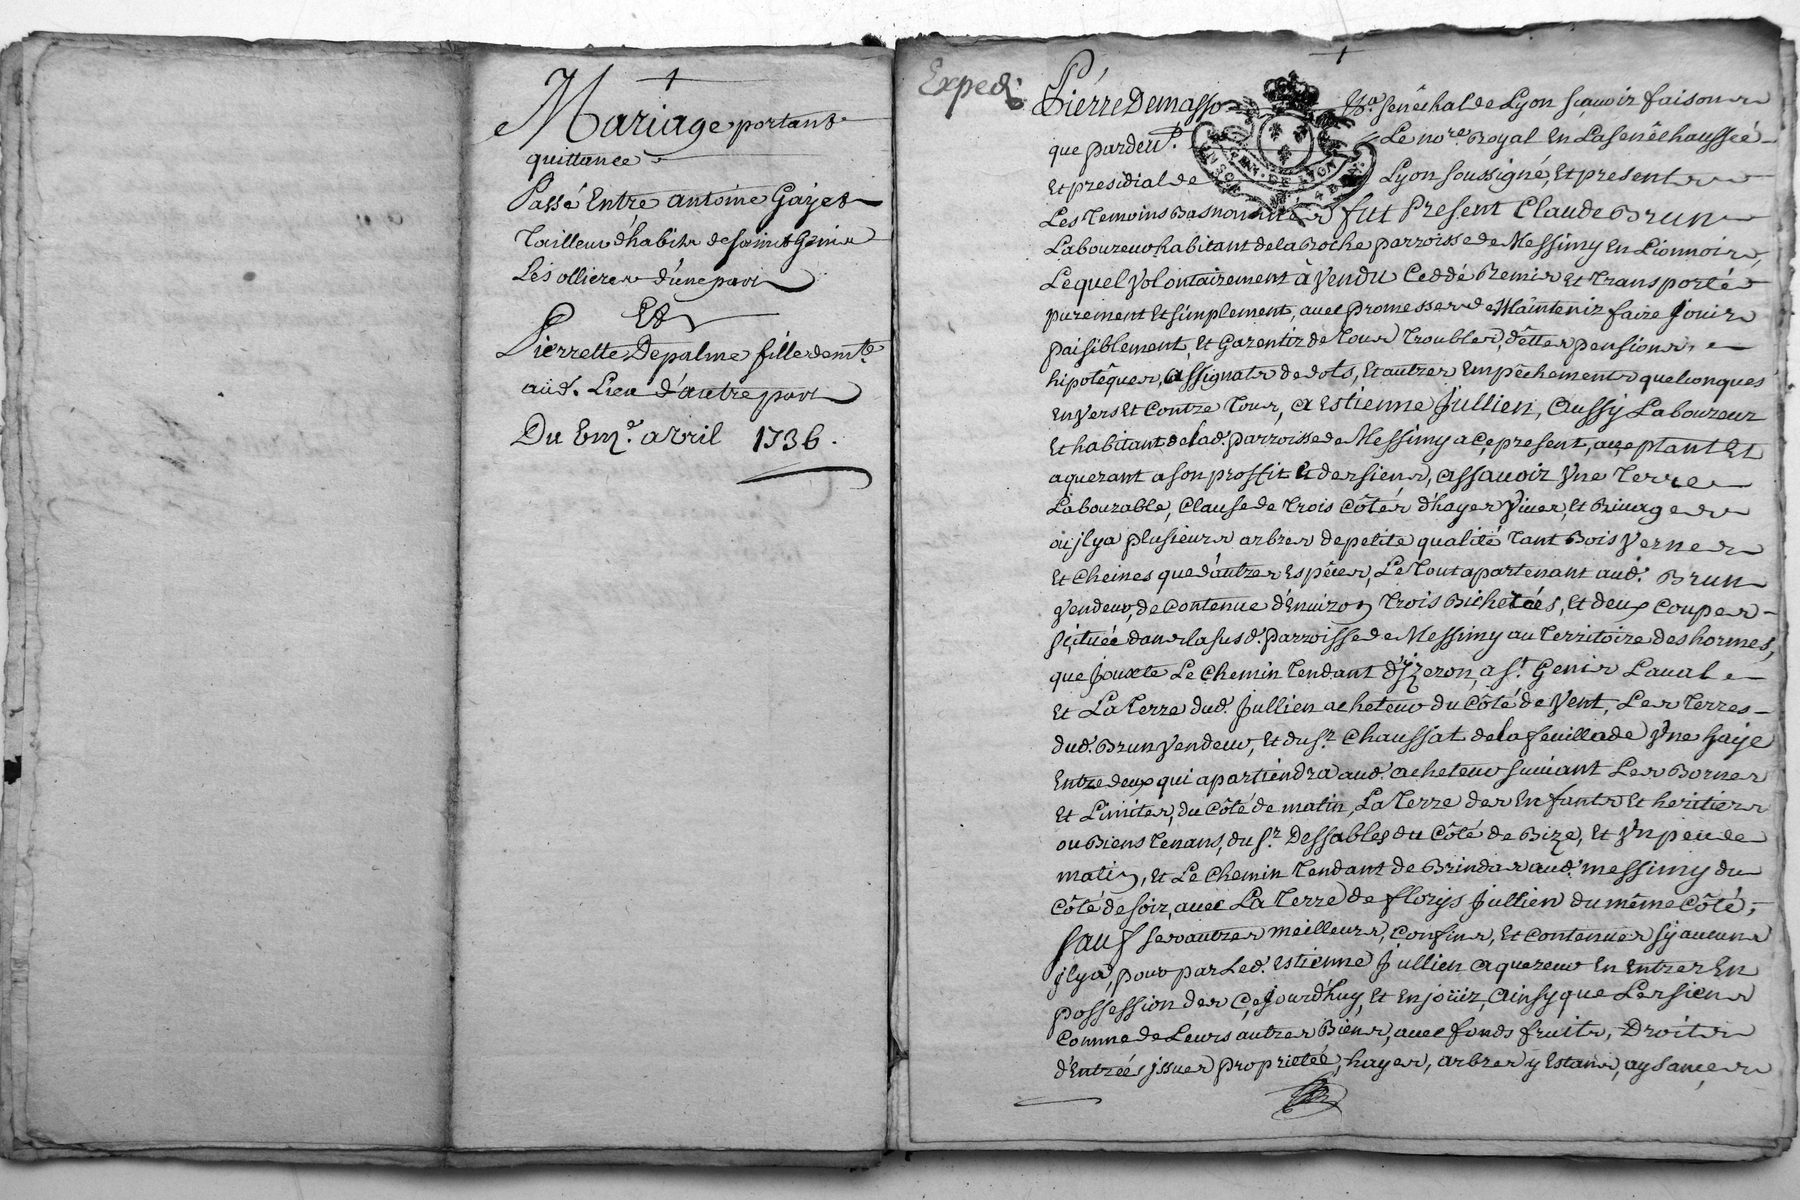 Mariage portant
quittance
Passé Entre antoine Gayet
Tailleur d'habits de saint Genis
Les ollieres d'une part
Et
Pierrette Depalme fille de mte.
aud. Lieu d'autre part
Du Em.e avril 1736.
Expedi.
Pierre Demasso senéchal de Lyon sçavoir faisons
que pardevt. Le nore. Royal En La senêchaussée
Et presidial de Lyon soussigné, Et presents
Les Temoins Basnommés fut Present Claude Brun
Laboureur habitant de la Roche parroisse de Messimy En Lionnois,
Lequel Volontairement à Vendu Ceddé Remis Et Transporté
purement Et simplement, avec promesses de Maintenir faire Jouir
paisiblement, Et Garentir de Tous Troubles, dêttes pensions,
hipotêques, assignats de dots, Et autres Empêchements quelconques
Envers Et Contre Tous, a Estienne Jullien, Aussy Laboureur
Et habitant de lad. parroisse de Messimy a ce present, acceptant Et
aquerant a son proffit Et des siens, assavoir Une Terre
Labourable, Clause de Trois Côtés d'hayes Vives, Et Rivages
où jl y a plusieurs arbres de petite qualité Tant Bois Vernes
Et Cheines que d'autres Espêces, Le Tout apartenant aud. Brun
Vendeur, de Contenue d'Environ Trois Bicherées, Et deux Coupes
scituée dans la susd. parroisse de Messimy au Territoire des hormes,
que Jouxte Le Chemin Tendant d'yzeron, a St. Genis Laval
Et La Terre dud. Jullien acheteur du Côté de Vent, Les Terres
dud. Brun Vendeur, Et du Sr. Chaussat de la feuillade Une haye
Entre deux qui apartiendra aud. acheteur suivant Les Bornes
Et Limites, du Côté de matin, La Terre des Enfants Et heritiers
ou Biens Tenans, du Sr. Dessables du Côté de Bize, Et Un peu de
matin, Et Le Chemin Tendant de Brindas aud. messimy du
Côté de soir, avec La Terre de florys Jullien du même Côté,
sauf ses autres meilleurs, Confins, Et Contenues sy aucuns
jl y a, pour par Led. Estienne Jullien aquereur En Entrer En
possession des Cejourd'huy, Et En joüir, Ainsy que Les siens
Comme de Leurs autres Biens, avec fonds fruits, Droits
d'Entrées jssues proprietée, hayes, arbres y Estans, aysances